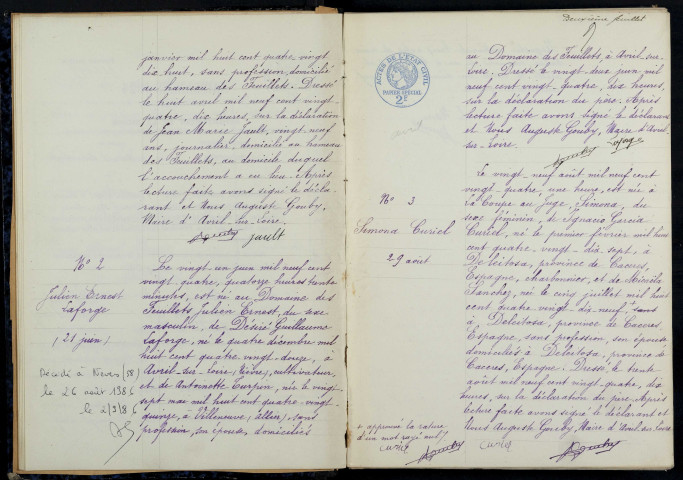 janvier mil huit cent quatre-vingt
dix huit, sans profession domiciliée
au hameau des Feuillets. Dressé
le huit avril mil neuf cent vingt-
quatre, dix heures, sur la déclaration
de Jean Marie Jault, vingt-neuf
ans, journalier domicilié au hameau
des Feuillets, au domicile duquel
l'accouchement a eu lieu - Après
lecture faite avons signé le décla
rant et Nous August Gouby,
Maire d'Avril-sur-Loire.
Gouby Jault
No 2
Julien Ernest
Laforge
(21 juin)
Décédé à Nevers (58)
le 26 août 1986
le 2/9/86
Le vingt-un juin mil neuf cent
vingt-quatre, quatorze heures trente
minutes, est né au Domaine des
Feuillets, Julien Ernest, du sexe
masculin, de Désiré Guillaume
Laforge, né le quatre décembre mil
huit cent quatre vingt-douze, à
Avril-sur-Loire (Nièvre), cultivateur,
et de Antoinette Turpin, née le vingt-
sept mai mil huit cent quatre-vingt-
quinze, à Villeneuve (Allier), sans
profession, son épouse, domiciliés
Deuxième feuillet
ACTES DE L'ETAT CIVIL
PAPIER SPECIAL
2F
au Domaine des Feuillets, à Avril-sur-
Loire. Dressé le vingt-deux juin mil
neuf cent vingt-quatre, dix heures,
sur la déclaration du père. Après
lecture faite avons signé le déclarant
et Nous Auguste Gouby, Maire d'Avril-
sur-Loire.
Gouby Laforge
No 3
Simona Curiel
29 août
Le vingt-neuf août mil neuf cent
vingt-quatre, une heure, est née à
la Coupe au Juge, Simona, du
sexe féminin, de Ignacio Garcia
Curiel, né le premier février mil huit
cent quatre-vingt-dix sept, à
Deleitosa, province de Caceres,
Espagne, charbonnier, et de Micaëla
Sanchez, née le cinq juillet mil huit
cent quatre vingt-dix-neuf, sans
à Deleitosa, province de Caceres,
Espagne, sans profession, son épouse,
domiciliés à Deleitosa, province de
Caceres, Espagne. Dressé le trente
août mil neuf cent vingt-quatre, dix
heures, sur la déclaration du père. Après
lecture faite avons signé le déclarant et
Nous Auguste Gouby, Maire d'Avril-sur-Loire
+ approuvé la rature
d'un mot rayé nul
Curiel Gouby Curiel Gouby